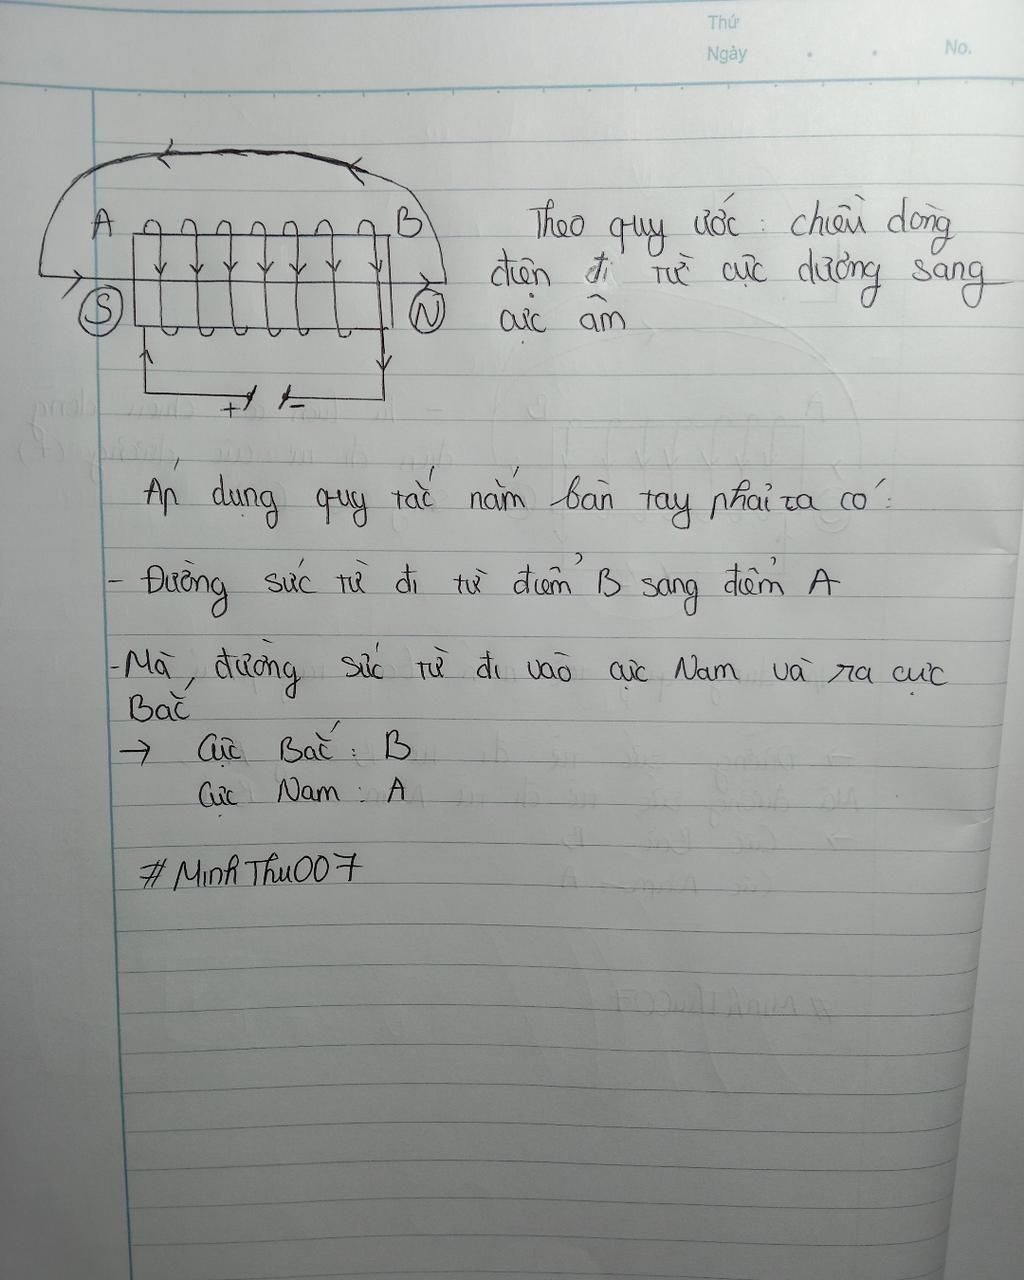 Thứ
Ngày . . No.
A B
S N
+ -
Theo quy ước : chiều dòng
điện đi từ cực dương sang
cực âm
Áp dụng quy tắc nắm bàn tay phải ta có :
- Đường sức từ đi từ điểm B sang điểm A
- Mà, đường sức từ đi vào cực Nam và ra cực
Bắc
→ Cực Bắc : B
Cực Nam : A
# MinhThu007